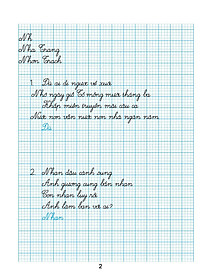 Nh
Nha Trang
Nhơn Trạch
1. Dù ai đi ngược về xuôi
Nhớ ngày giỗ Tổ mồng mười tháng ba
Khắp miền truyền mãi câu ca
Nước non vẫn nước non nhà ngàn năm
Dù
2. Nhan sắc cảnh sung
Anh gương cung bán nhan
Con nhan luy số
Anh làm bạn với ai?
Nhan
2